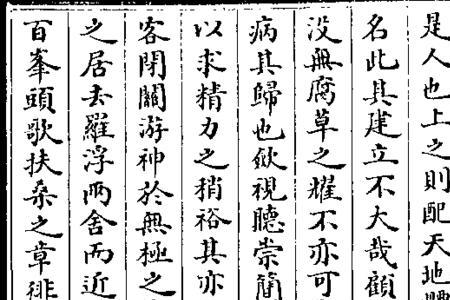 是人也上之則配天地
名此其建立不大哉顧
没無腐草之耀不亦可
病其歸也斂視聽崇簡
以求精力之稍裕其亦
客閉關游神於無極之
之居去羅浮兩舍而近
百峯頭歌扶桑之章徘